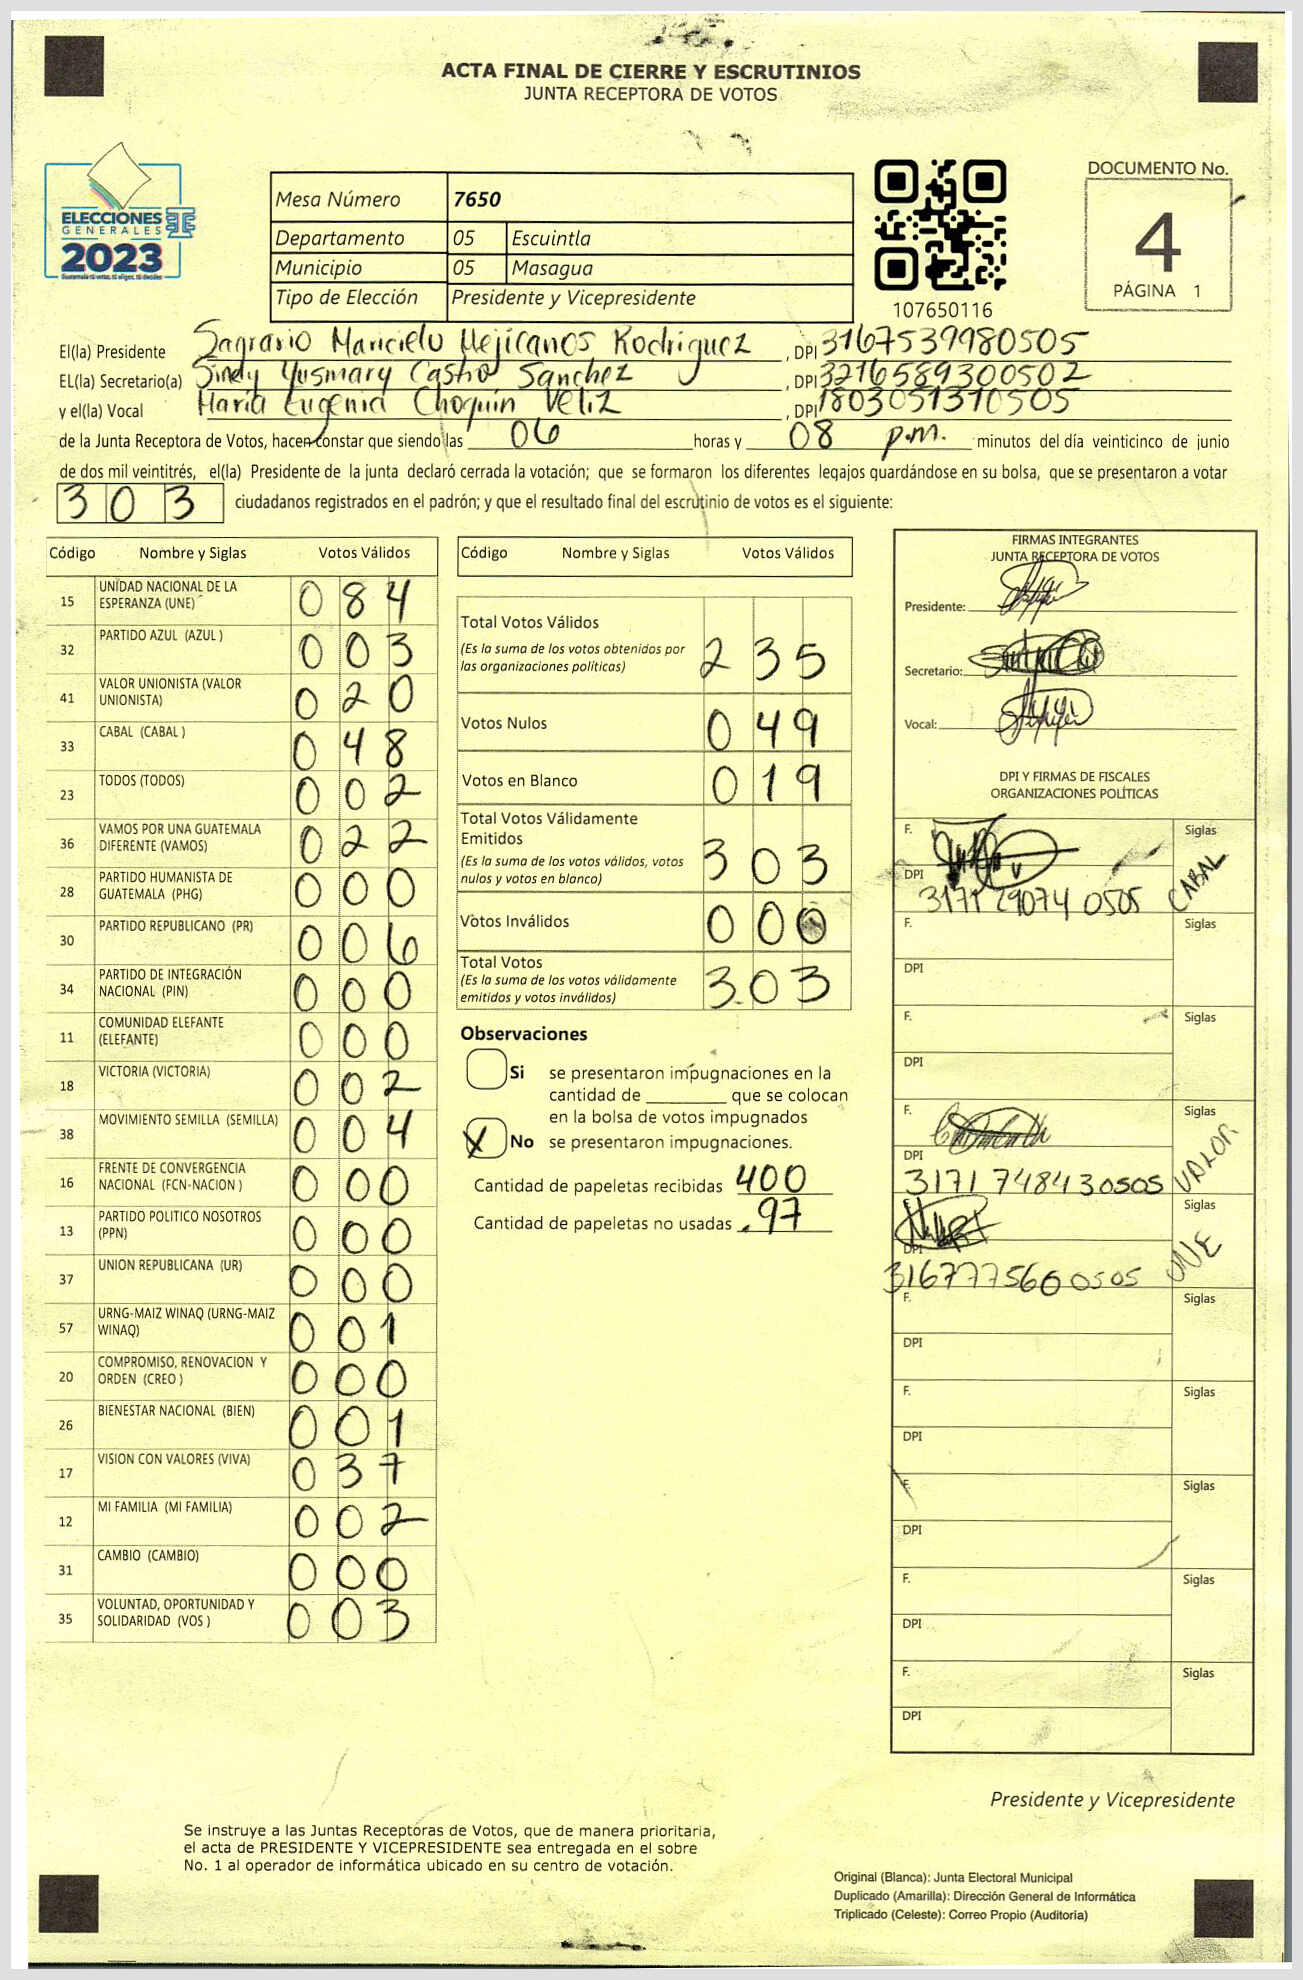 ACTA FINAL DE CIERRE Y ESCRUTINIOS
JUNTA RECEPTORA DE VOTOS
ELECCIONES
GENERALES
2023
Guatemala tú votas, tú eliges, tú decides
Mesa Número 7650
Departamento 05 Escuintla
Municipio 05 Masagua
Tipo de Elección Presidente y Vicepresidente
107650116
DOCUMENTO No.
4
PÁGINA 1
El(la) Presidente Sagrario Maricielo Mejicanos Rodriguez , DPI 3167539980505
EL(la) Secretario(a) Sindy Yusmary Castro Sanchez , DPI 3216589300502
y el(la) Vocal Maria Eugenia Choquin Veliz , DPI 1803051370505
de la Junta Receptora de Votos, hacen constar que siendo las 06 horas y 08 p.m. minutos del día veinticinco de junio
de dos mil veintitrés, el(la) Presidente de la junta declaró cerrada la votación; que se formaron los diferentes legajos guardándose en su bolsa, que se presentaron a votar
303 ciudadanos registrados en el padrón; y que el resultado final del escrutinio de votos es el siguiente:
Código Nombre y Siglas Votos Válidos
15 UNIDAD NACIONAL DE LA ESPERANZA (UNE) 084
32 PARTIDO AZUL (AZUL ) 003
41 VALOR UNIONISTA (VALOR UNIONISTA) 020
33 CABAL (CABAL ) 048
23 TODOS (TODOS) 002
36 VAMOS POR UNA GUATEMALA DIFERENTE (VAMOS) 022
28 PARTIDO HUMANISTA DE GUATEMALA (PHG) 000
30 PARTIDO REPUBLICANO (PR) 006
34 PARTIDO DE INTEGRACIÓN NACIONAL (PIN) 000
11 COMUNIDAD ELEFANTE (ELEFANTE) 000
18 VICTORIA (VICTORIA) 002
38 MOVIMIENTO SEMILLA (SEMILLA) 004
16 FRENTE DE CONVERGENCIA NACIONAL (FCN-NACION ) 000
13 PARTIDO POLITICO NOSOTROS (PPN) 000
37 UNION REPUBLICANA (UR) 000
57 URNG-MAIZ WINAQ (URNG-MAIZ WINAQ) 001
20 COMPROMISO, RENOVACION Y ORDEN (CREO ) 000
26 BIENESTAR NACIONAL (BIEN) 001
17 VISION CON VALORES (VIVA) 037
12 MI FAMILIA (MI FAMILIA) 002
31 CAMBIO (CAMBIO) 000
35 VOLUNTAD, OPORTUNIDAD Y SOLIDARIDAD (VOS ) 003
Código Nombre y Siglas Votos Válidos
Total Votos Válidos
(Es la suma de los votos obtenidos por
las organizaciones políticas) 235
Votos Nulos 049
Votos en Blanco 019
Total Votos Válidamente
Emitidos
(Es la suma de los votos válidos, votos
nulos y votos en blanco) 303
Votos Inválidos 000
Total Votos
(Es la suma de los votos válidamente
emitidos y votos inválidos) 303
Observaciones
Si se presentaron impugnaciones en la
cantidad de ________ que se colocan
en la bolsa de votos impugnados
X No se presentaron impugnaciones.
Cantidad de papeletas recibidas 400
Cantidad de papeletas no usadas 97
FIRMAS INTEGRANTES
JUNTA RECEPTORA DE VOTOS
Presidente:
Secretario:
Vocal:
DPI Y FIRMAS DE FISCALES
ORGANIZACIONES POLÍTICAS
F. Siglas
DPI
3171290740505 CABAL
F. Siglas
DPI
F. Siglas
DPI
F. Siglas
DPI
3171748430505 VALOR
Siglas
DPI
3167775600505 UNE
F. Siglas
DPI
F. Siglas
DPI
F. Siglas
DPI
F. Siglas
DPI
F. Siglas
DPI
Presidente y Vicepresidente
Se instruye a las Juntas Receptoras de Votos, que de manera prioritaria,
el acta de PRESIDENTE Y VICEPRESIDENTE sea entregada en el sobre
No. 1 al operador de informática ubicado en su centro de votación.
Original (Blanca): Junta Electoral Municipal
Duplicado (Amarilla): Dirección General de Informática
Triplicado (Celeste): Correo Propio (Auditoría)